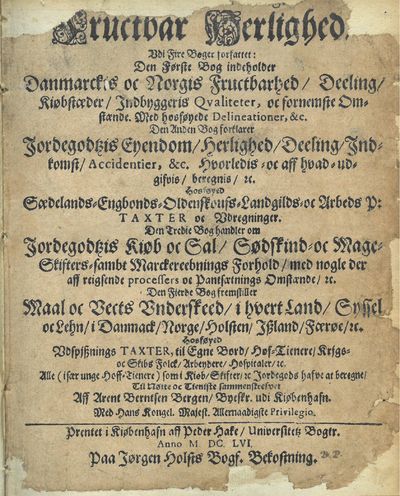 Fructbar Herlighed,
Udi Fire Bøger forfattet:
Den Første Bog indeholder
Danmarckis oc Norgis Fructbarhed/ Deeling/
Kiøbstæder/ Indbyggeris Qvaliteter, oc fornemste Om-
stænde. Med hosføyede Delineationer, &c.
Den Anden Bog forklarer
Jordegodtzis Eyendom/ Herlighed/ Deeling/ Ind-
komst/ Accidentier, &c. Hvorledis oc aff hvad ud-
gifvis/ beregnis/ ꝛc.
Hosføyed
Sædelands-Engbonds-Oldenskoufs-Landgilds-oc Arbeds P:
TAXTER oc Udregninger.
Den Tredie Bog handler om
Jordegodtzis Kiøb oc Sal/ Sødskind-oc Mage-
Skifters-sambt Marckereebnings Forhold/ med nogle der
aff reigsende processers oc Pantsætnings Omstænde/ ꝛc.
Den Fierde Bog fremstiller
Maal oc Vects Underskeed/ i hvert Land/ Syssel
oc Lehn/ i Danmarck/ Norge/ Holsten/ Ißland/ Ferrøe/ ꝛc.
Hosføyed
Udspißnings TAXTER, til Egne Bord/ Hof-Tienere/ Krigs-
oc Skibs Folck/ Arbeydere/ Hospitaler/ ꝛc.
Alle (især unge Hoff-Tienere) som i Kiøb/ Skifter/ ꝛc Jordegods hafve at beregne/
Til Nøtte oc Tieniste sammenskrefvet
Aff Arent Berntsen Bergen/ Byeskr. udi Kiøbenhafn.
Med Hans Kongel. Majest. Allernaadigste Privilegio.
Prentet i Kiøbenhafn aff Peder Hake/ Universitetz Bogtr.
Anno M. DC. LVI.
Paa Jørgen Holsts Bogf. Bekostning.